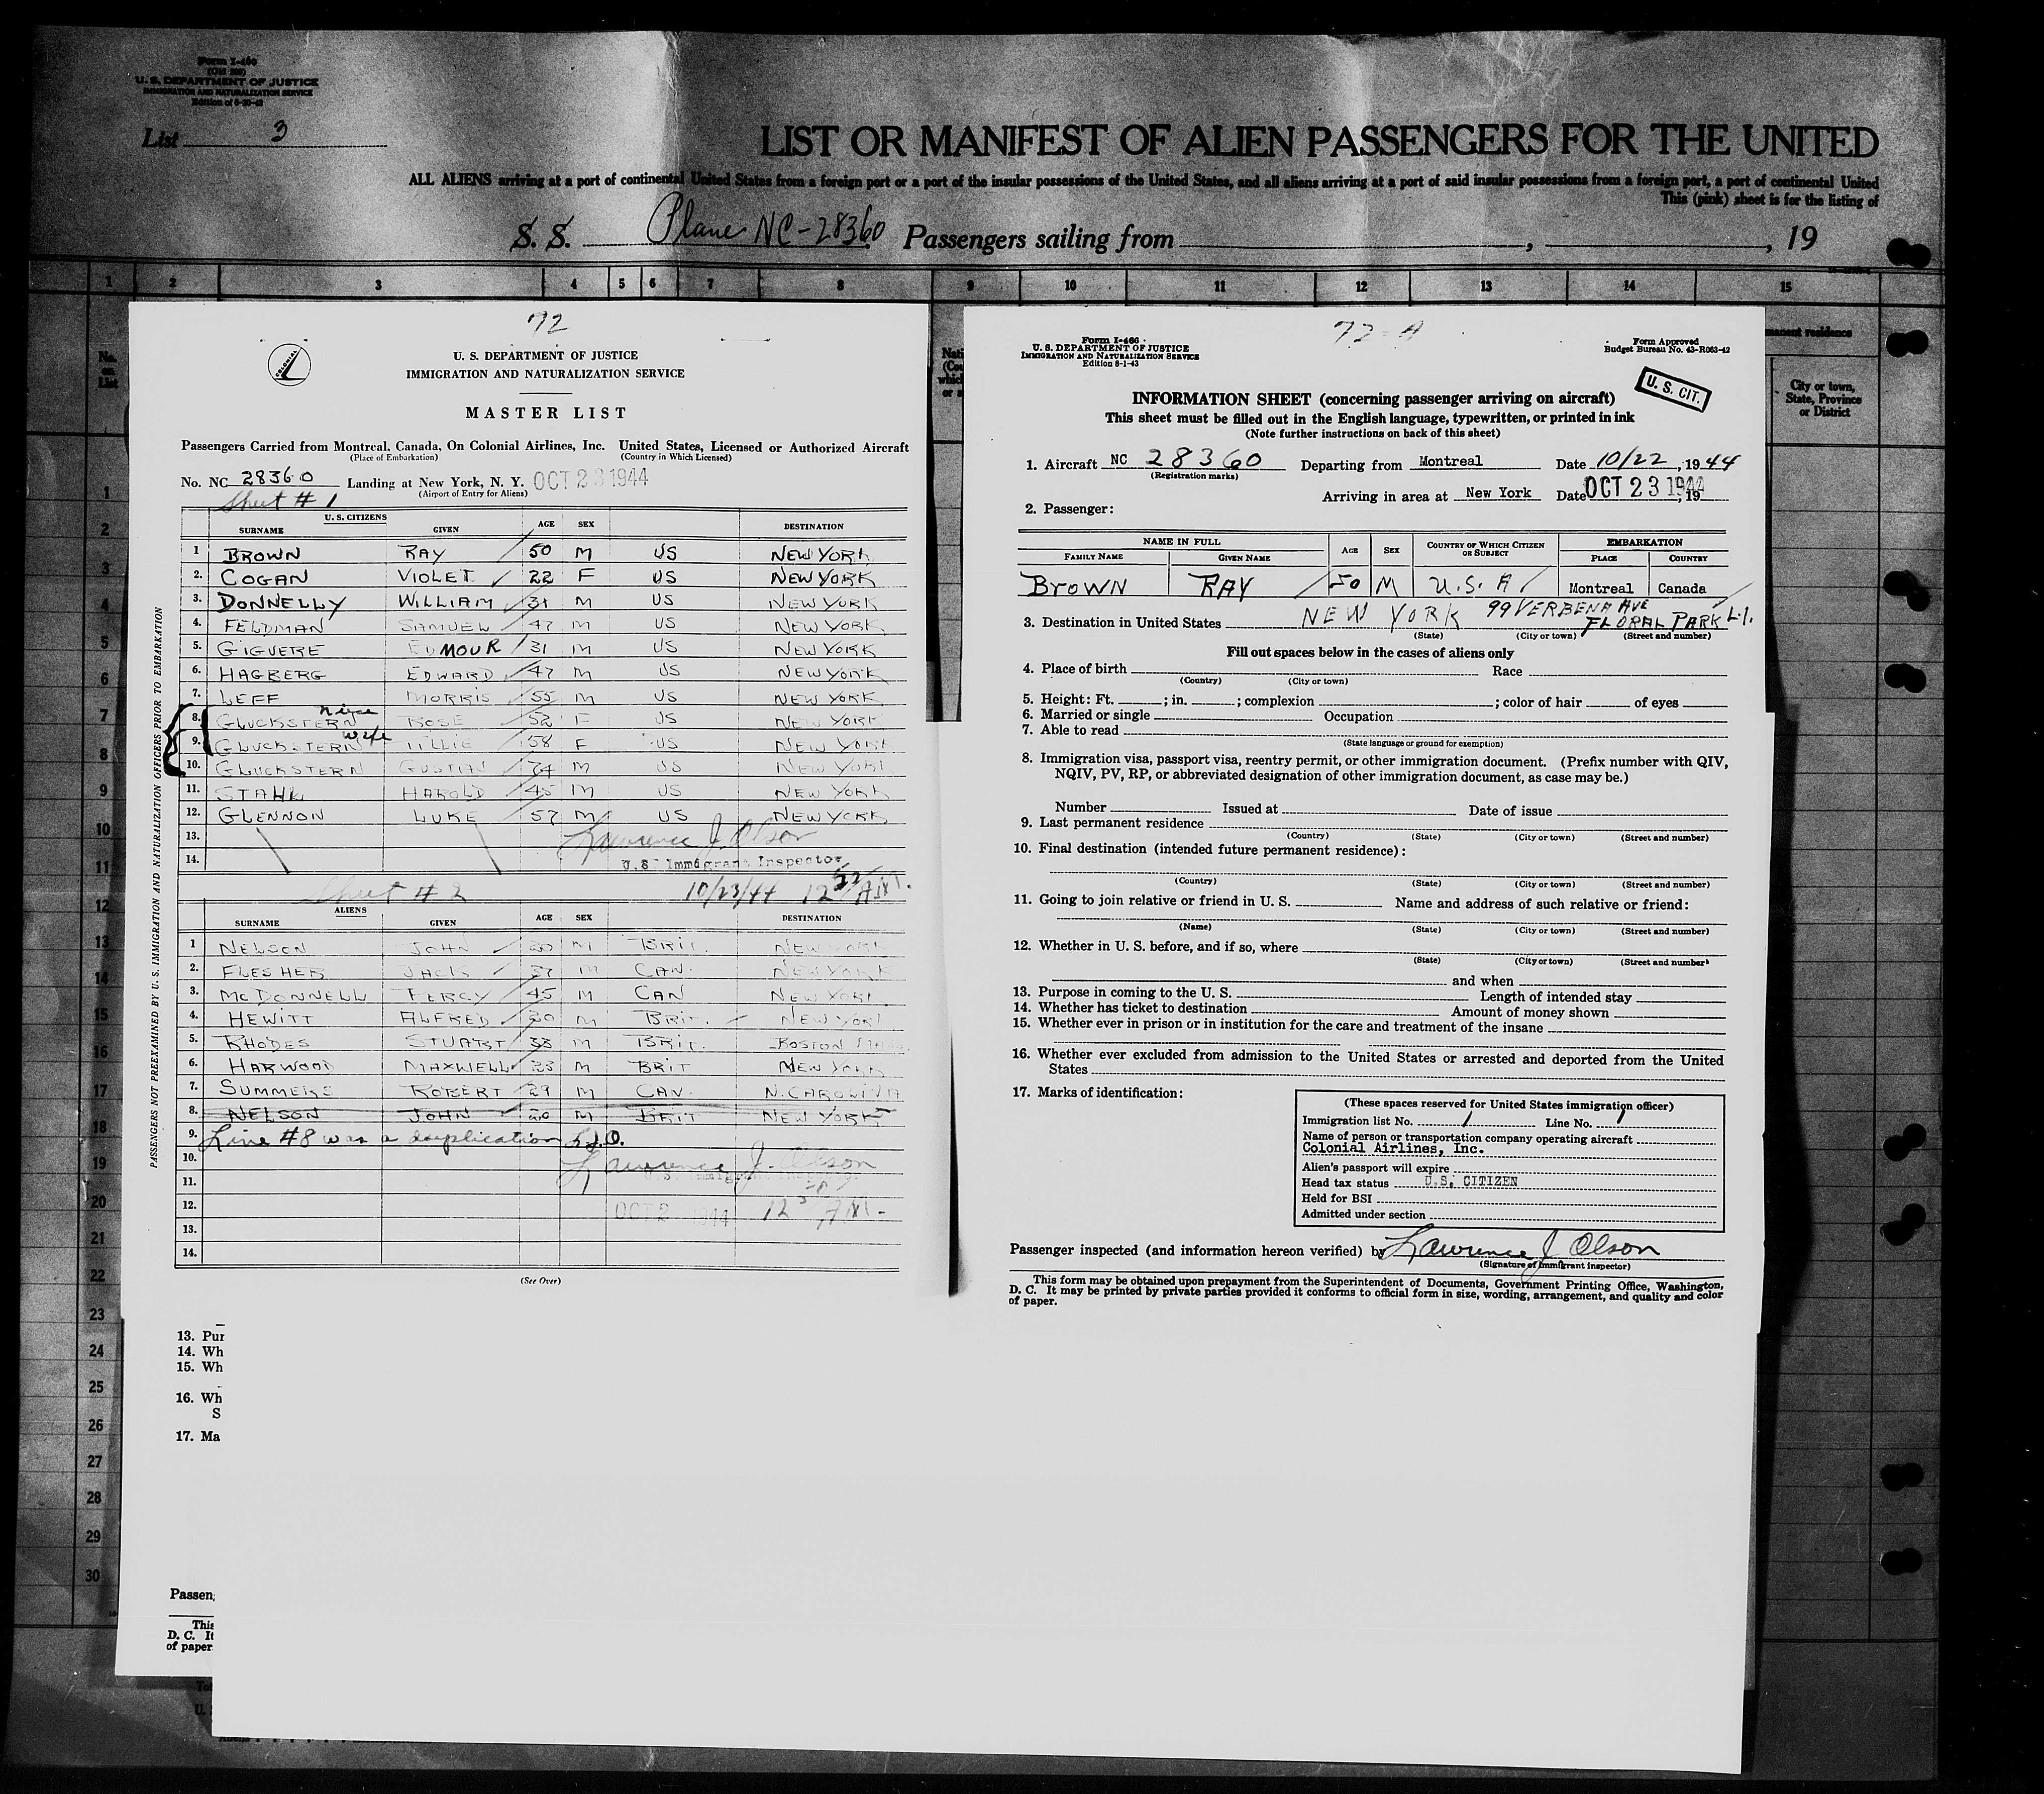 Form I-460
(Old 500)
U. S. DEPARTMENT OF JUSTICE
IMMIGRATION AND NATURALIZATION SERVICE
List 3
LIST OR MANIFEST OF ALIEN PASSENGERS FOR THE UNITED
ALL ALIENS arriving at a port of continental United States from a foreign port or a port of the insular possessions of the United States, and all aliens arriving at a port of said insular possessions from a foreign port, a port of continental United
This (pink) sheet is for the listing of
S. S. Plane NC-28360 Passengers sailing from , , 19
1 2 3 4 5 6 7 8 9 10 11 12 13 14 15
No. on List
manent residence
City or town,
State, Province
or District
72
COLONIAL
U. S. DEPARTMENT OF JUSTICE
IMMIGRATION AND NATURALIZATION SERVICE
MASTER LIST
Passengers Carried from Montreal, Canada, On Colonial Airlines, Inc. United States, Licensed or Authorized Aircraft
(Place of Embarkation) (Country in Which Licensed)
No. NC 28360 Landing at New York, N. Y. OCT 23 1944
(Airport of Entry for Aliens)
Sheet # 1
U. S. CITIZENS
SURNAME GIVEN AGE SEX DESTINATION
1 BROWN RAY 50 M US NEW YORK
2. COGAN VIOLET 22 F US NEW YORK
3. DONNELLY WILLIAM 31 M US NEW YORK
4. FELDMAN SAMUEL 47 M US NEW YORK
5. GIGUERE EDMOUR 31 M US NEW YORK
6. HAGBERG EDWARD 47 M US NEW YORK
7. LEFF MORRIS 55 M US NEW YORK
8. GLUCKSTERN niece ROSE 52 F US NEW YORK
9. GLUCKSTERN wife TILLIE 58 F US NEW YORK
10. GLUCKSTERN GUSTAV 74 M US NEW YORK
11. STAHL HAROLD 45 M US NEW YORK
12. GLENNON LUKE 57 M US NEW YORK
13. Lawrence J. Olson
14. U.S. Immigrant Inspector
Sheet # 2 10/23/44 12 52 AM.
ALIENS
SURNAME GIVEN AGE SEX DESTINATION
1 NELSON JOHN 20 M BRIT. NEW YORK
2. FLESHER JACK 37 M CAN. NEW YORK
3. McDONNELL PERCY 45 M CAN NEW YORK
4. HEWITT ALFRED 30 M BRIT. NEW YORK
5. RHODES STUART 38 M BRIT. BOSTON MASS
6. HARWOOD MAXWELL 23 M BRIT NEW YORK
7. SUMMERS ROBERT 29 M CAN. N. CAROLINA
8. NELSON JOHN 20 M BRIT NEW YORK
9. Line #8 was a duplication L.J.O.
10. Lawrence J. Olson
11. U.S. Immigrant Inspector
12. OCT 2 1944 12 AM.
13.
14.
(See Over)
PASSENGERS NOT PREEXAMINED BY U. S. IMMIGRATION AND NATURALIZATION OFFICERS PRIOR TO EMBARKATION
13. Pur
14. Wh
15. Wh
16. Wh
S
17. Ma
Passen
This
D. C. It
of paper
1
2
3
4
5
6
7
8
9
10
11
12
13
14
15
16
17
18
19
20
21
22
23
24
25
26
27
28
29
30
72-A
Form I-466
U. S. DEPARTMENT OF JUSTICE
IMMIGRATION AND NATURALIZATION SERVICE
Edition 8-1-43
Form Approved
Budget Bureau No. 43-R063-42
U. S. CIT.
INFORMATION SHEET (concerning passenger arriving on aircraft)
This sheet must be filled out in the English language, typewritten, or printed in ink
(Note further instructions on back of this sheet)
1. Aircraft NC 28360 Departing from Montreal Date 10/22, 1944
(Registration marks)
Arriving in area at New York Date OCT 23 1944, 19
2. Passenger:
NAME IN FULL AGE SEX COUNTRY OF WHICH CITIZEN OR SUBJECT EMBARKATION
FAMILY NAME GIVEN NAME PLACE COUNTRY
BROWN RAY 50 M U.S.A Montreal Canada
3. Destination in United States NEW YORK 99 VERBENA AVE FLORAL PARK L.I.
(State) (City or town) (Street and number)
Fill out spaces below in the cases of aliens only
4. Place of birth Race
(Country) (City or town)
5. Height: Ft. ; in. ; complexion ; color of hair of eyes
6. Married or single Occupation
7. Able to read
(State language or ground for exemption)
8. Immigration visa, passport visa, reentry permit, or other immigration document. (Prefix number with QIV,
NQIV, PV, RP, or abbreviated designation of other immigration document, as case may be.)
Number Issued at Date of issue
9. Last permanent residence
(Country) (State) (City or town) (Street and number)
10. Final destination (intended future permanent residence):
(Country) (State) (City or town) (Street and number)
11. Going to join relative or friend in U. S. Name and address of such relative or friend:
(Name) (State) (City or town) (Street and number)
12. Whether in U. S. before, and if so, where
(State) (City or town) (Street and number)
and when
13. Purpose in coming to the U. S. Length of intended stay
14. Whether has ticket to destination Amount of money shown
15. Whether ever in prison or in institution for the care and treatment of the insane
16. Whether ever excluded from admission to the United States or arrested and deported from the United
States
17. Marks of identification:
(These spaces reserved for United States immigration officer)
Immigration list No. 1 Line No. 1
Name of person or transportation company operating aircraft
Colonial Airlines, Inc.
Alien's passport will expire
Head tax status U.S. CITIZEN
Held for BSI
Admitted under section
Passenger inspected (and information hereon verified) by Lawrence J Olson
(Signature of immigrant inspector)
This form may be obtained upon prepayment from the Superintendent of Documents, Government Printing Office, Washington,
D. C. It may be printed by private parties provided it conforms to official form in size, wording, arrangement, and quality and color
of paper.